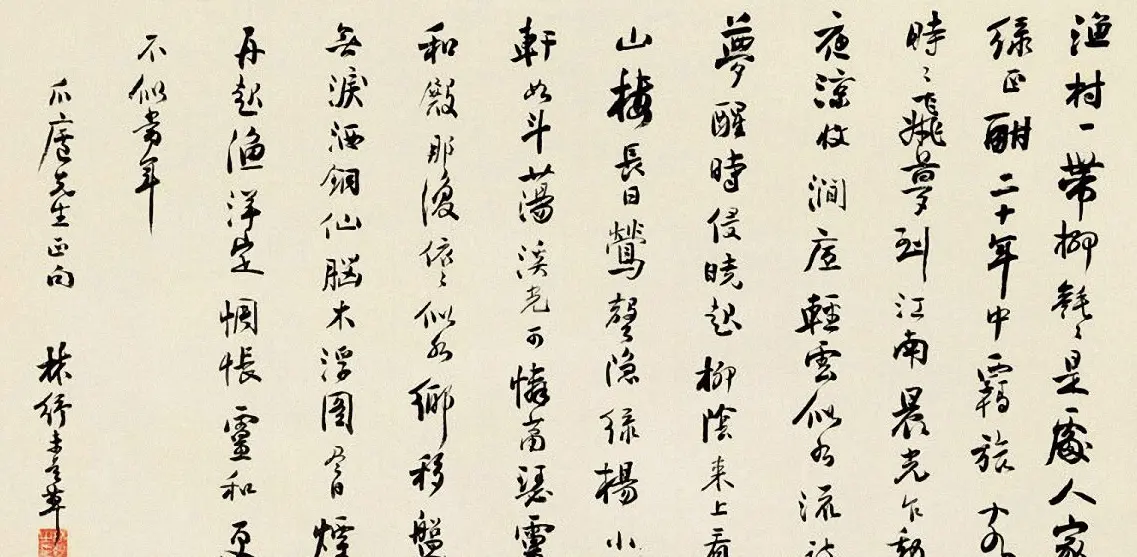 漁村一帶柳毿毿是處人家
綠正酣二十年中羈旅客
時時夢到江南晨光乍動
夜涼收澗底輕雲似水流
夢醒時侵曉起柳陰來上看
山樓長日鶯聲隱綠楊小
軒如斗蕩溪光可憐蕭瑟靈
和殿那復依依似水鄉移盤
無淚洒銅仙腦木浮圖胃煙
再起漁洋定惆悵靈和更
不似當年
爪廬先生正句
林紓未定草